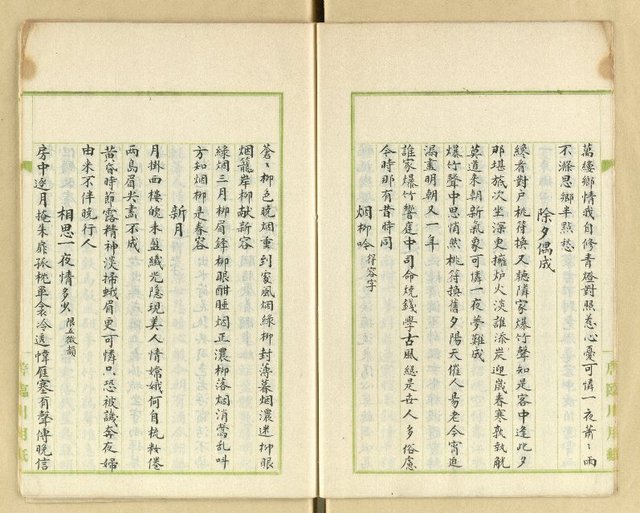 萬縷鄉情我自修青燈對照惹心憂可憐一夜蕭々雨
不滌思鄉半點愁
除夕偶成
終看對戶桃符換又聽隣家爆竹聲知是客中逢此夕
那堪孤次坐深更擁炉火淡誰添炭迎歲春寒教執觥
莫道來朝新氣象可憐一夜夢難成
爆竹聲中思悄然桃符換舊夕陽天催人易老今宵迫
漏盡明朝又一年
誰家爆竹響庭中司命燒錢學古風總是世人多俗慮
今時那有昔時同
烟柳吟 得容字
蒼々柳色晚烟重到家風烟綠柳封薄暮烟濃迷柳眼
烟籠岸柳献新容
綠烟三月柳眉鋒柳眼酣睡烟正濃柳落烟消鶯乱叫
方知烟柳是春容
新月
月掛西樓皎未盈纖光隱現美人情嫦娥何自梳妝倦
兩島眉尖畫不成
黃昏時節露精神淡掃蛾眉更可憐只恐被譏奔夜婦
由来不伴晚行人
相思一夜情多少 限五微韻
房中邀月掩朱扉孤枕單衾冷透幃雁塞有聲傳晚信
唐臨川用紙
唐臨川用紙